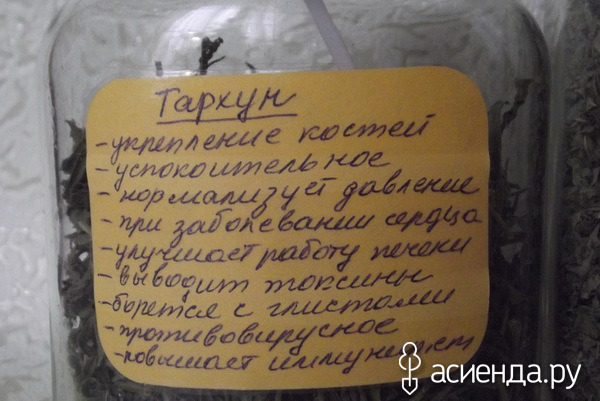 Тархун
-укрепление костей
-успокоительное
-нормализует давление
-при заболевании сердца
-улучшает работу печени
-выводит токсины
-борется с глистами
-противовирусное
-повышает иммунитет
асиенда.ру